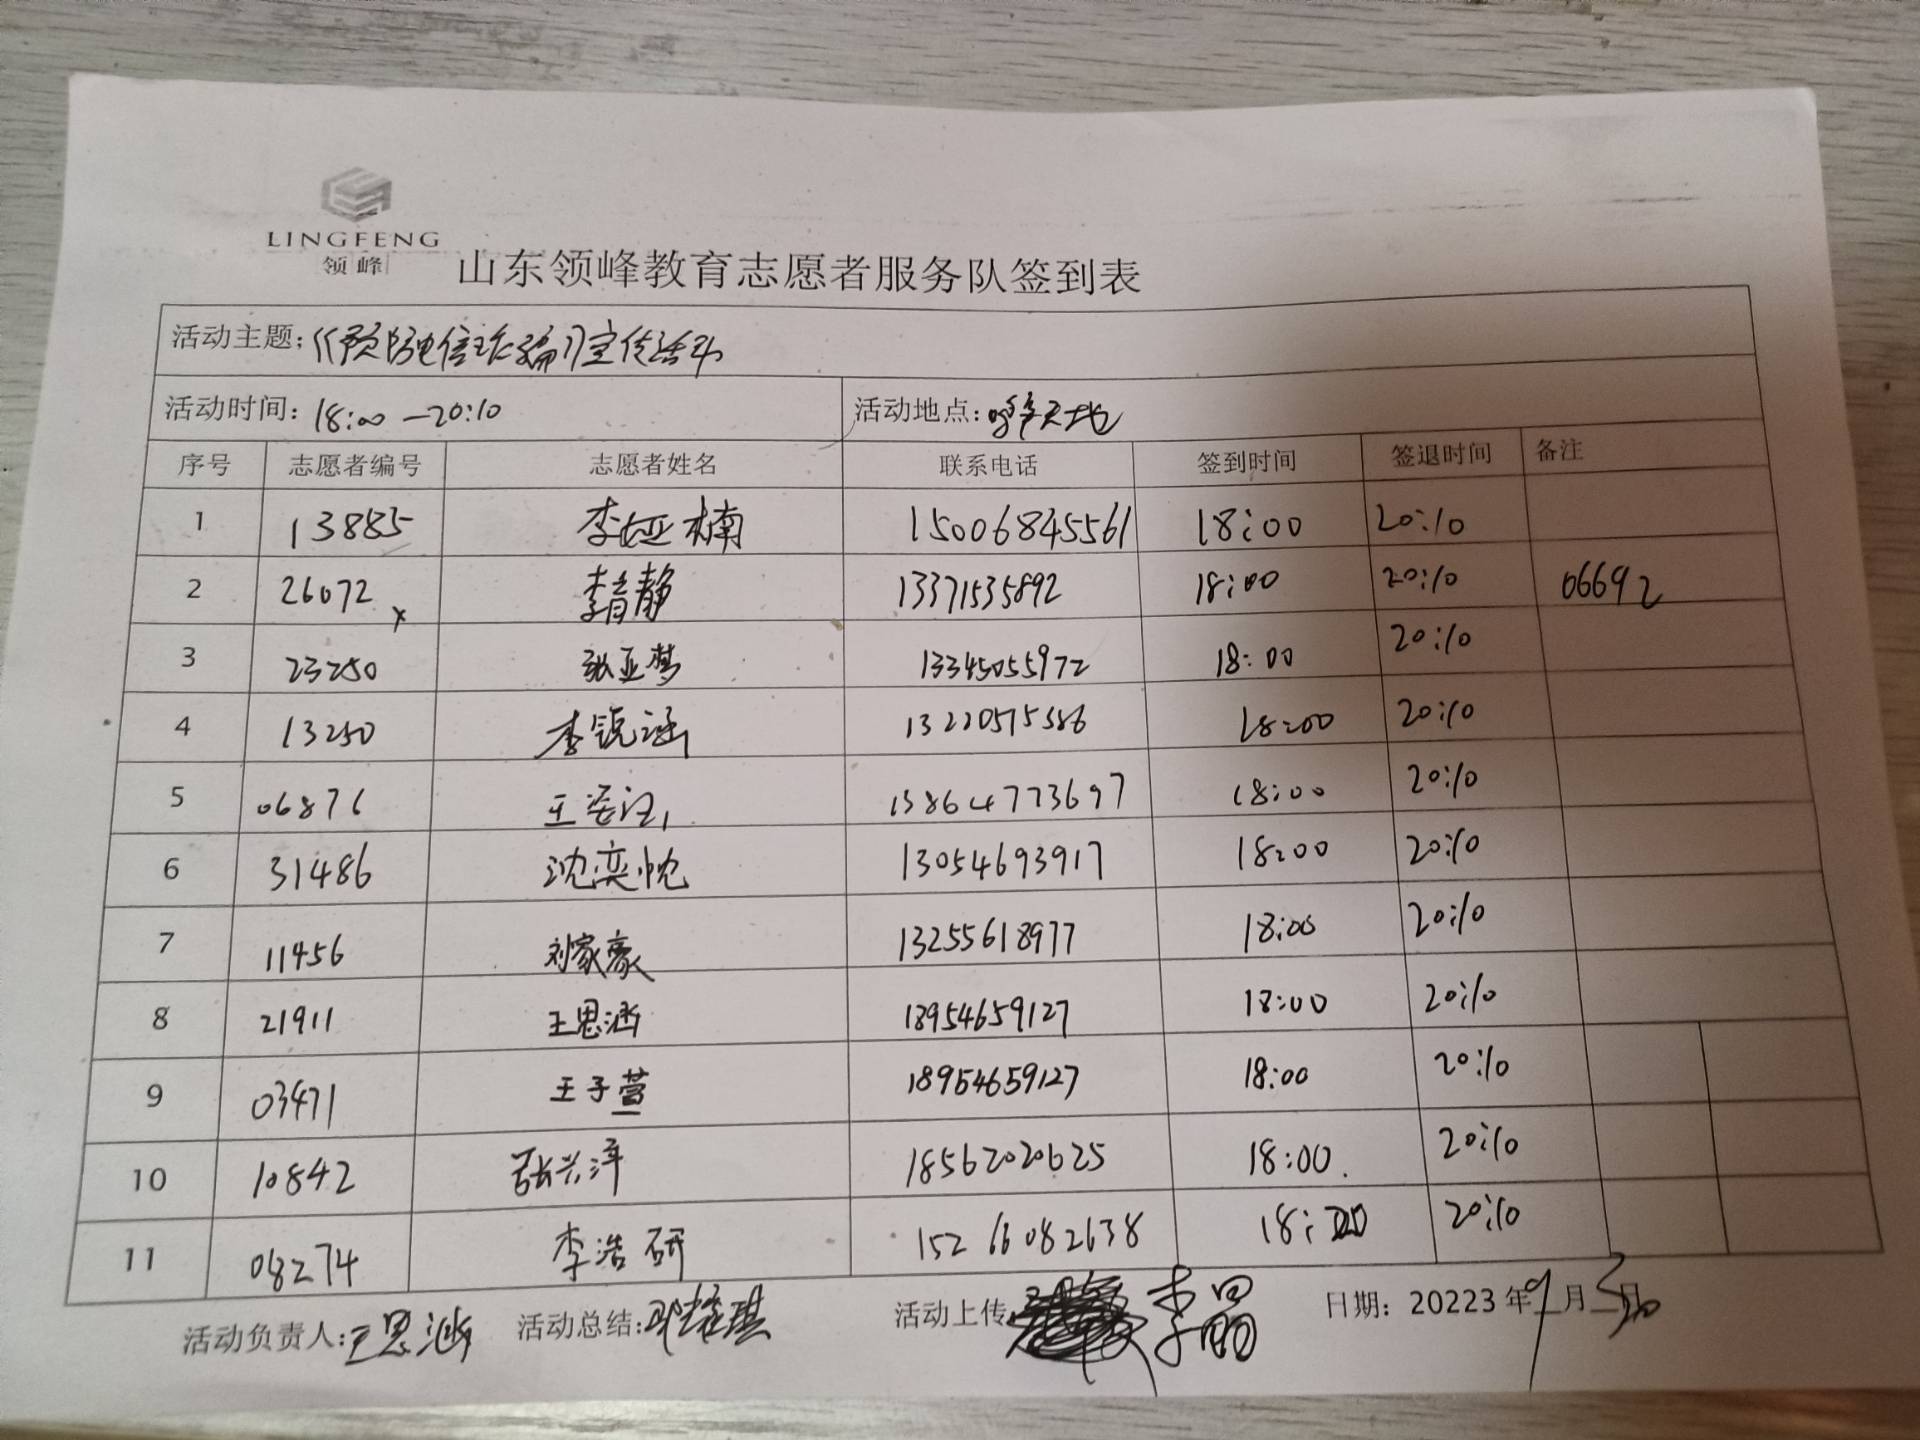 LINGFENG
领峰
山东领峰教育志愿者服务队签到表
活动主题:《预防电信诈骗》宣传活动
活动时间: 18:00—20:10 活动地点:天地
序号 志愿者编号 志愿者姓名 联系电话 签到时间 签退时间 备注
1 13885 李娅楠 15006845561 18:00 20:10
2 26072 x 李音静 13371535892 18:00 20:10 06692
3 23250 张亚梦 13345055972 18:00 20:10
4 13250 李锐涵 13220575586 18:00 20:10
5 06876 王 13864773697 18:00 20:10
6 31486 沈奕忱 13054693917 18:00 20:10
7 11456 刘家豪 13255618977 18:00 20:10
8 21911 王思涵 18954659127 18:00 20:10
9 03471 王子萱 18954659127 18:00 20:10
10 10842 张兴泽 18562020625 18:00. 20:10
11 08274 李浩研 15266082638 18: 20:10
活动负责人:王思涵 活动总结: 琪 活动上传 李晶 日期: 20223 年 9 月